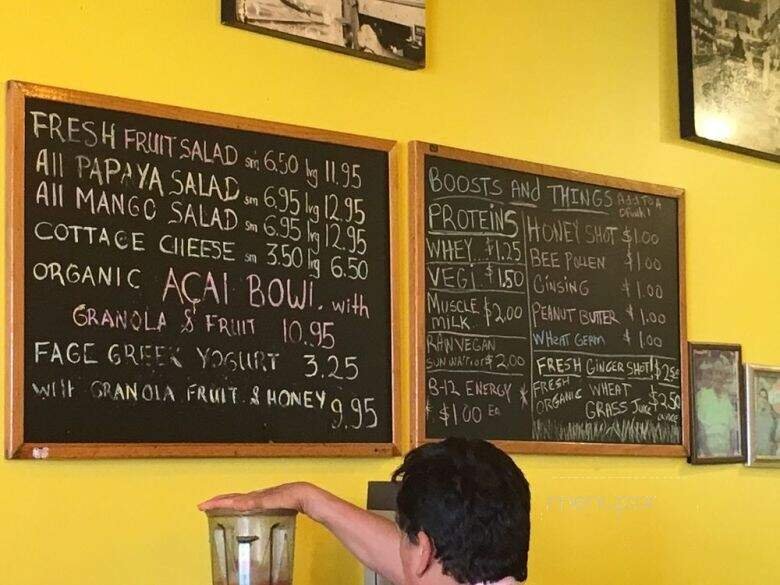 FRESH FRUIT SALAD sm 6.50 lrg 11.95
All PAPAYA SALAD sm 6.95 lrg 12.95
All MANGO SALAD sm 6.95 lrg 12.95
COTTAGE CHEESE sm 3.50 lrg 6.50
ORGANIC AÇAI BOWl. with
GRANOLA & FRUIT 10.95
FAGE GREEK YOGURT 3.25
with GRANOLA FRUIT & HONEY 9.95
BOOSTS AND THINGS ADD TO A
DRINK!
PROTEINS
WHEY $1.25
VEGI $1.50
MUSCLE $2.00
MILK
RAW VEGAN
SUN WARRIOR $2.00
B-12 ENERGY
$1.00 EA
HONEY SHOT $1.00
BEE POLLEN $1.00
GINSING $1.00
PEANUT BUTTER $1.00
WHEAT GERM $1.00
FRESH GINGER SHOT! $2.50
FRESH
ORGANIC WHEAT
GRASS JUICE $2.50
OUNCE